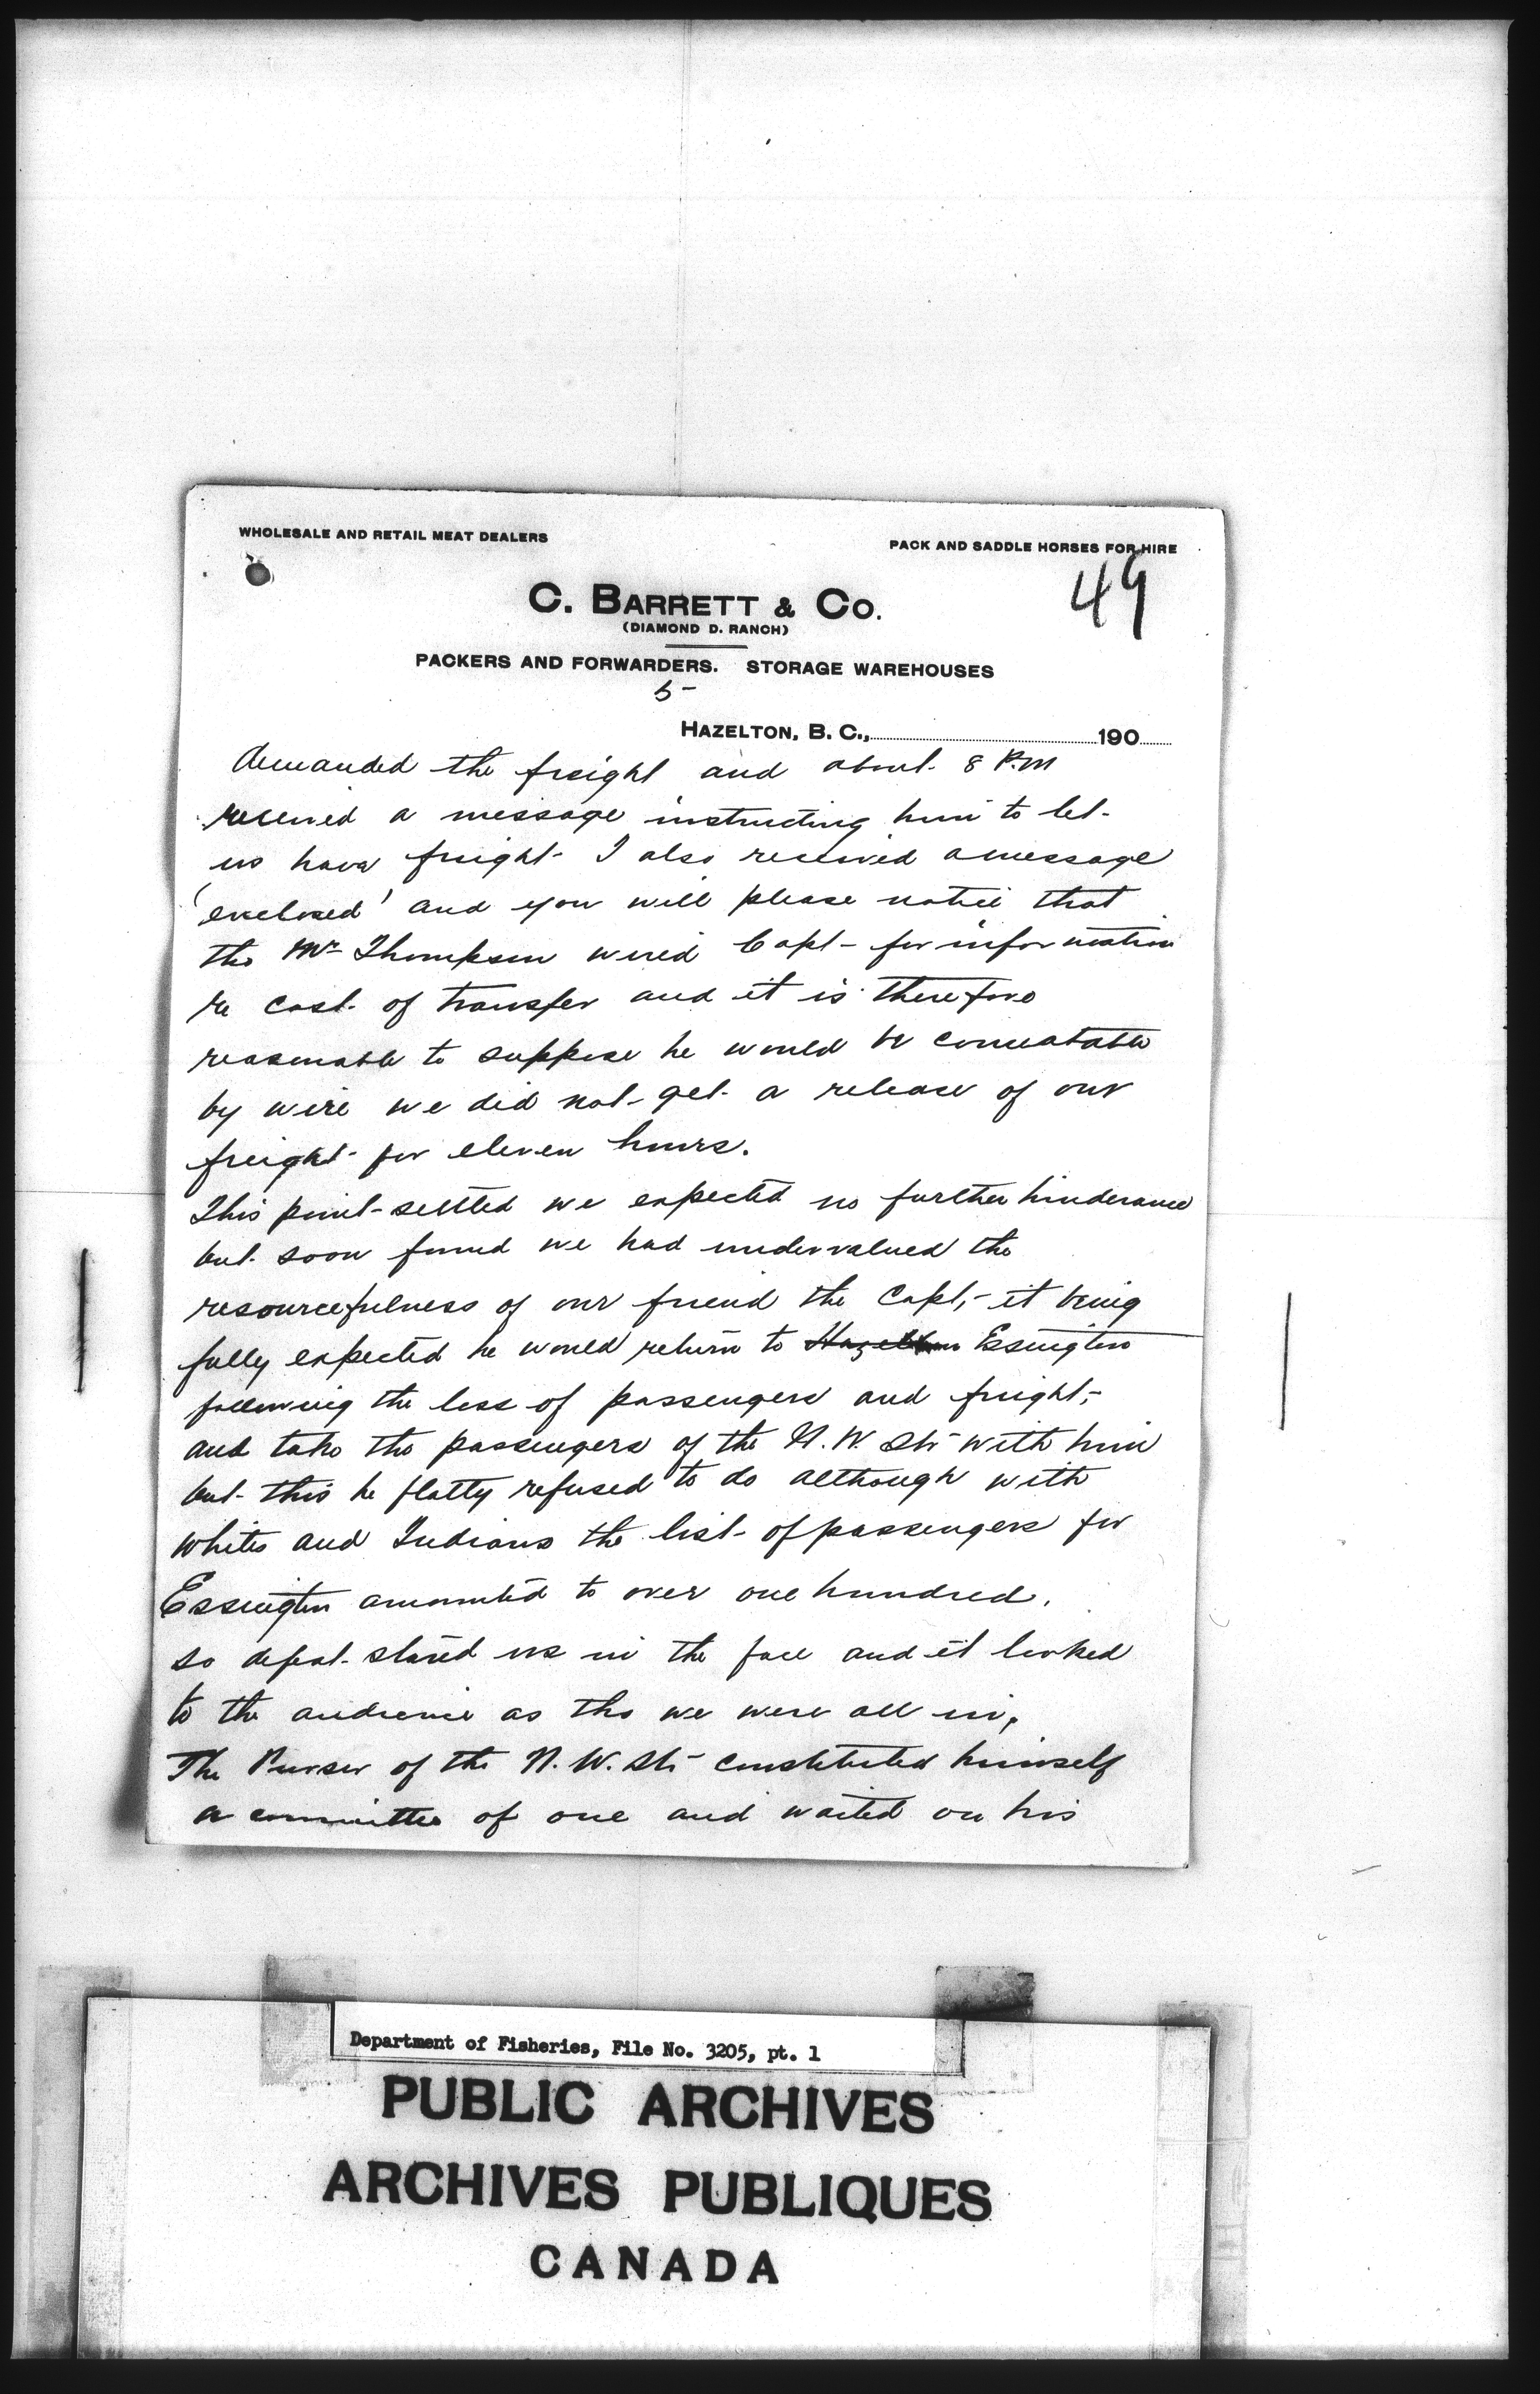 WHOLESALE AND RETAIL MEAT DEALERS
PACK AND SADDLE HORSES FOR HIRE
49
C. BARRETT & CO.
(DIAMOND D. RANCH)
PACKERS AND FORWARDERS. STORAGE WAREHOUSES
5-
HAZELTON, B. C., 190
demanded the freight and about 8 P.M
received a message instructing him to let
us have freight- I also received a message
'enclosed' and you will please notice that
tho Mr Thompson wired Capt- for information
re cost of transfer and it is therefore
reasonable to suppose he would be
by wire we did not get a release of our
freight for eleven hours.
This point settled we expected no further hinderance
but soon found we had undervalued the
resourcefulness of our friend the Capt,- it being
fully expected he would return to Hazelton Essington
following the loss of passengers and freight,-
and take the passengers of the N. W. Str with him
but this he flatly refused to do although with
whites and Indians the list of passengers for
Essington amounted to over one hundred.
so defeat stared us in the face and it looked
to the audience as tho we were all in,
The Purser of the N. W. Str constituted himself
a committee of one and waited on his
Department of Fisheries, File No. 3205, pt. 1
PUBLIC ARCHIVES
ARCHIVES PUBLIQUES
CANADA